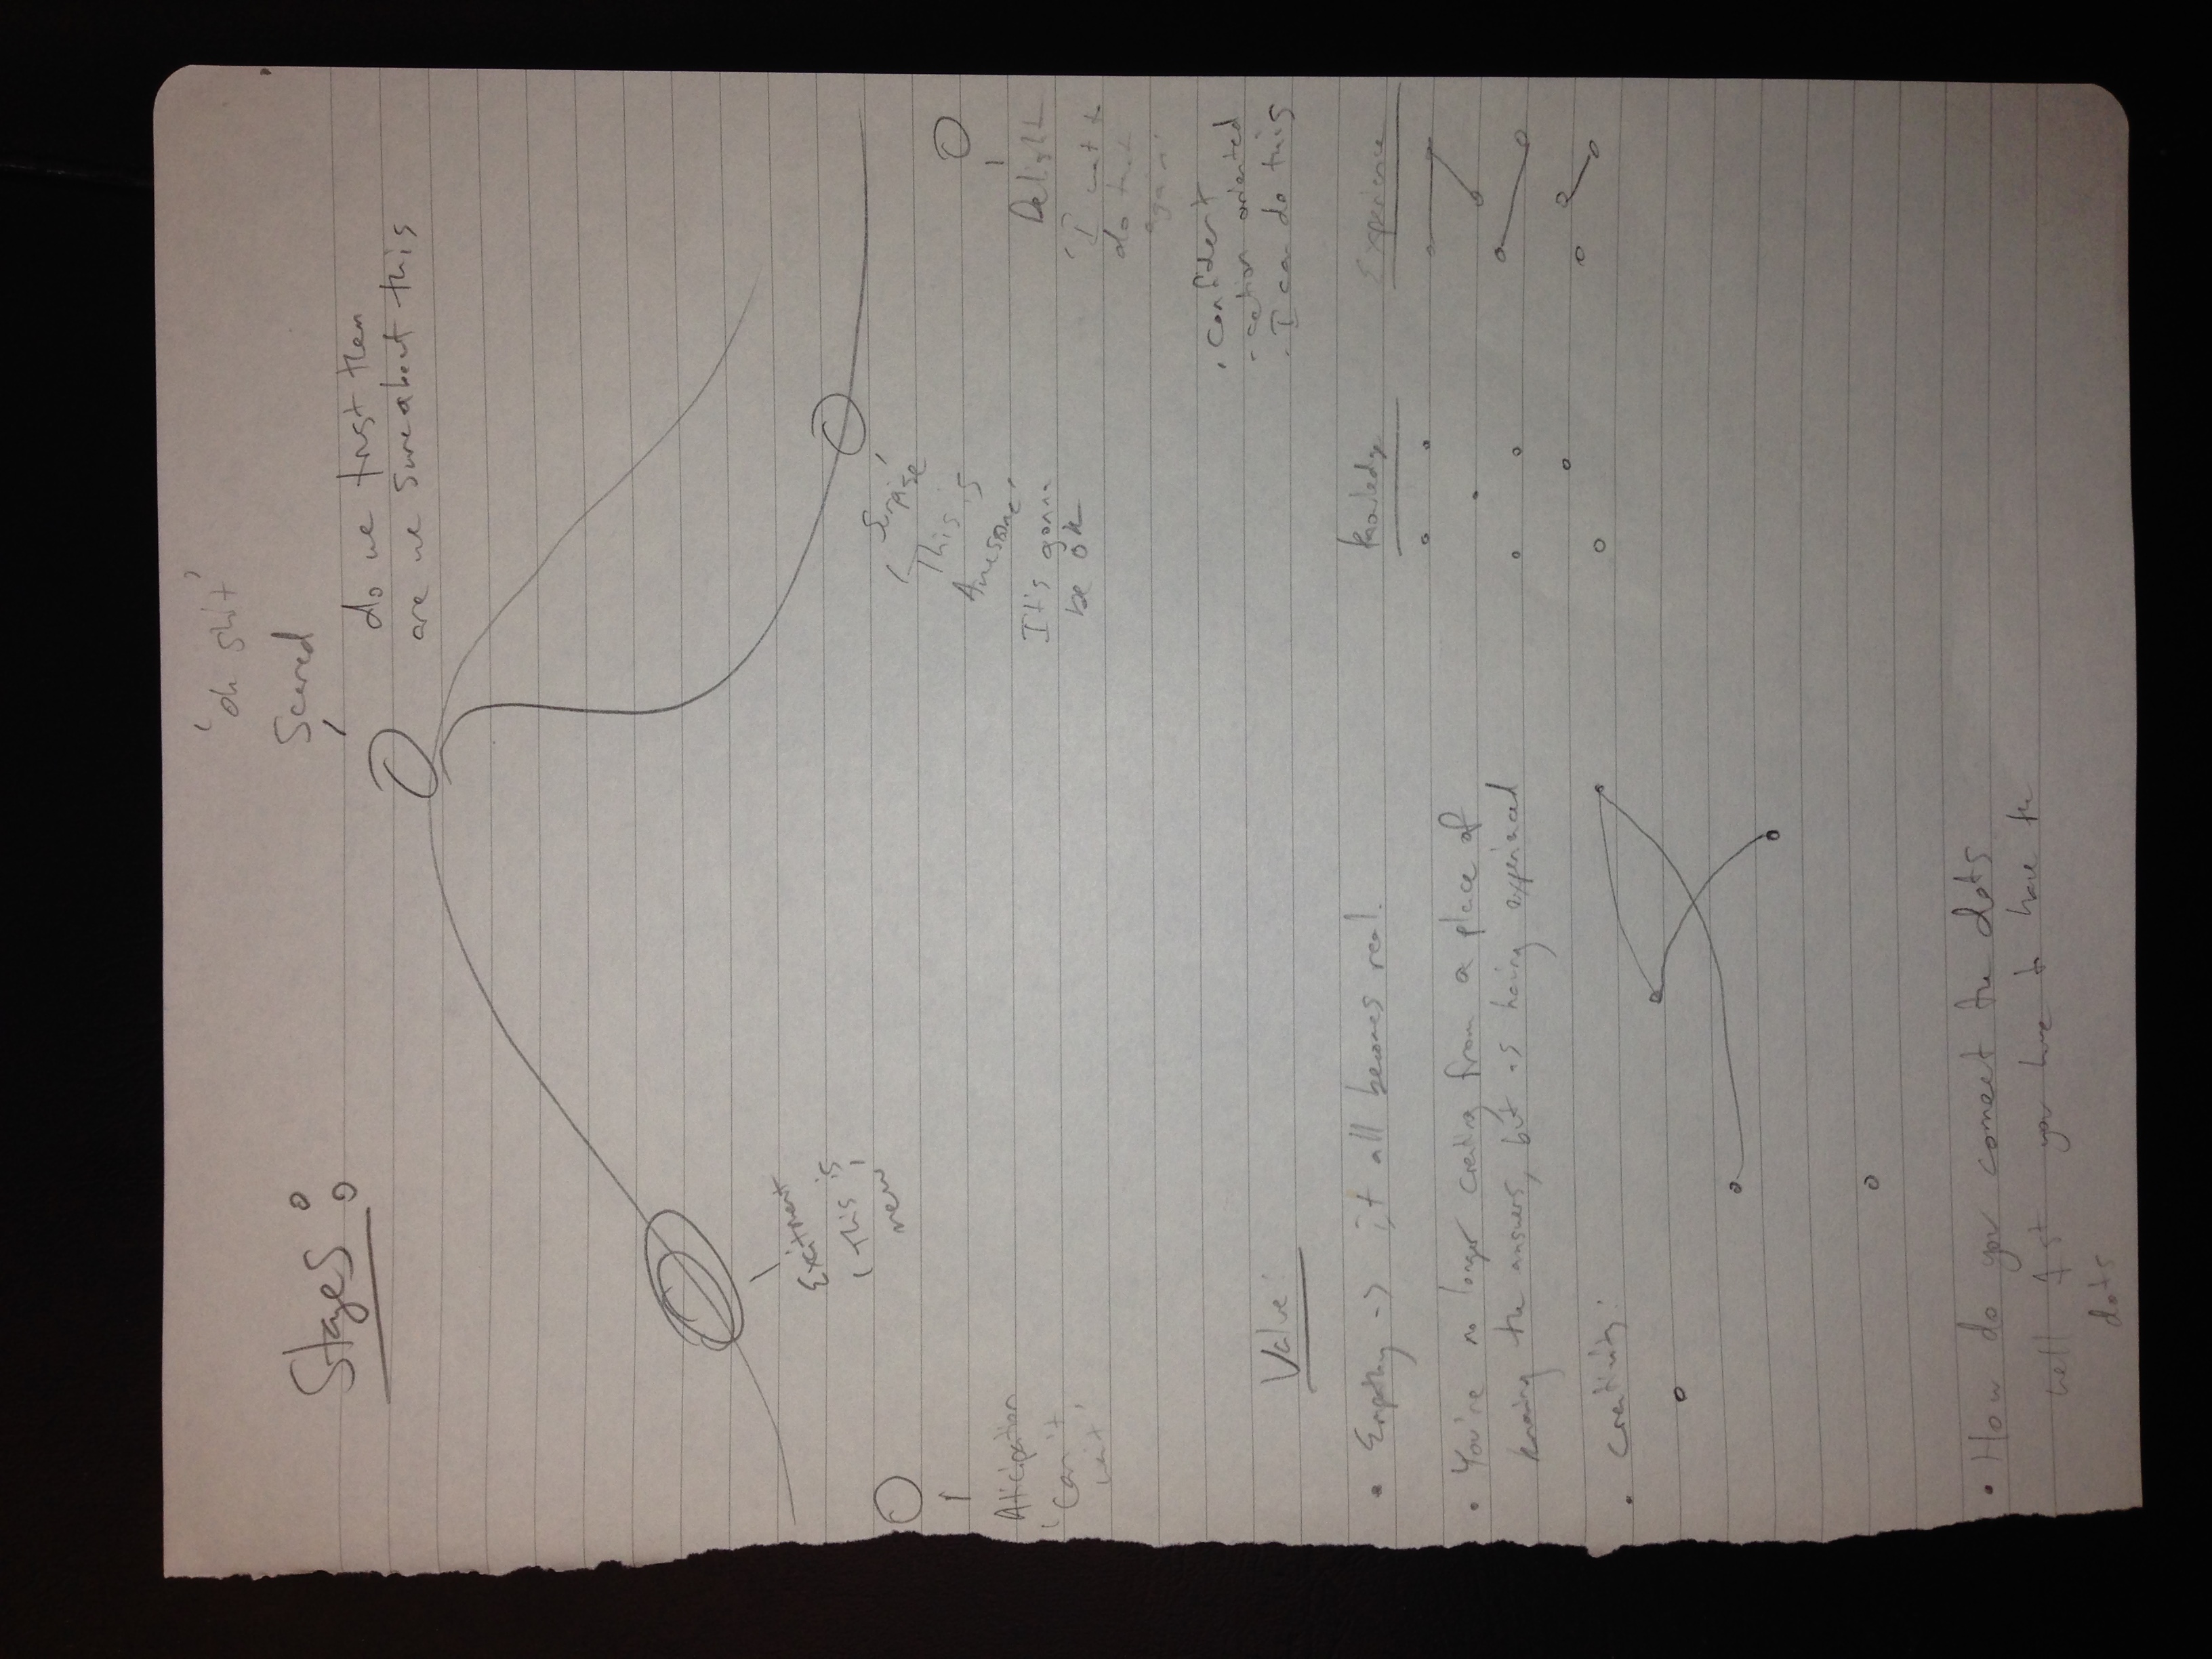 Stages:
'oh shit'
Scared
do we trust them
are we sure about this
Excitment
'This is
new'
Aticipation
'Can't
wait'
'Surprise'
This is
Awesome'
It's gonna
be ok
Delight
'I want to
do that
again'
· Confident
· action oriented
· I can do this
Value:
• Empathy -> it all becomes real.
• You're no longer creating from a place of
knowing the answers, but as having experienced
• Creativity:
Knowledge
Experience
• How do you connect the dots
well 1st you have to have the
dots